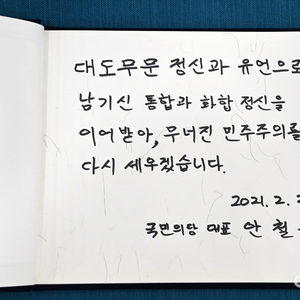 대도무문 정신과 유언으로
남기신 통합과 화합 정신을
이어받아, 무너진 민주주의를
다시 세우겠습니다.
2021. 2.
국민의당 대표 안 철